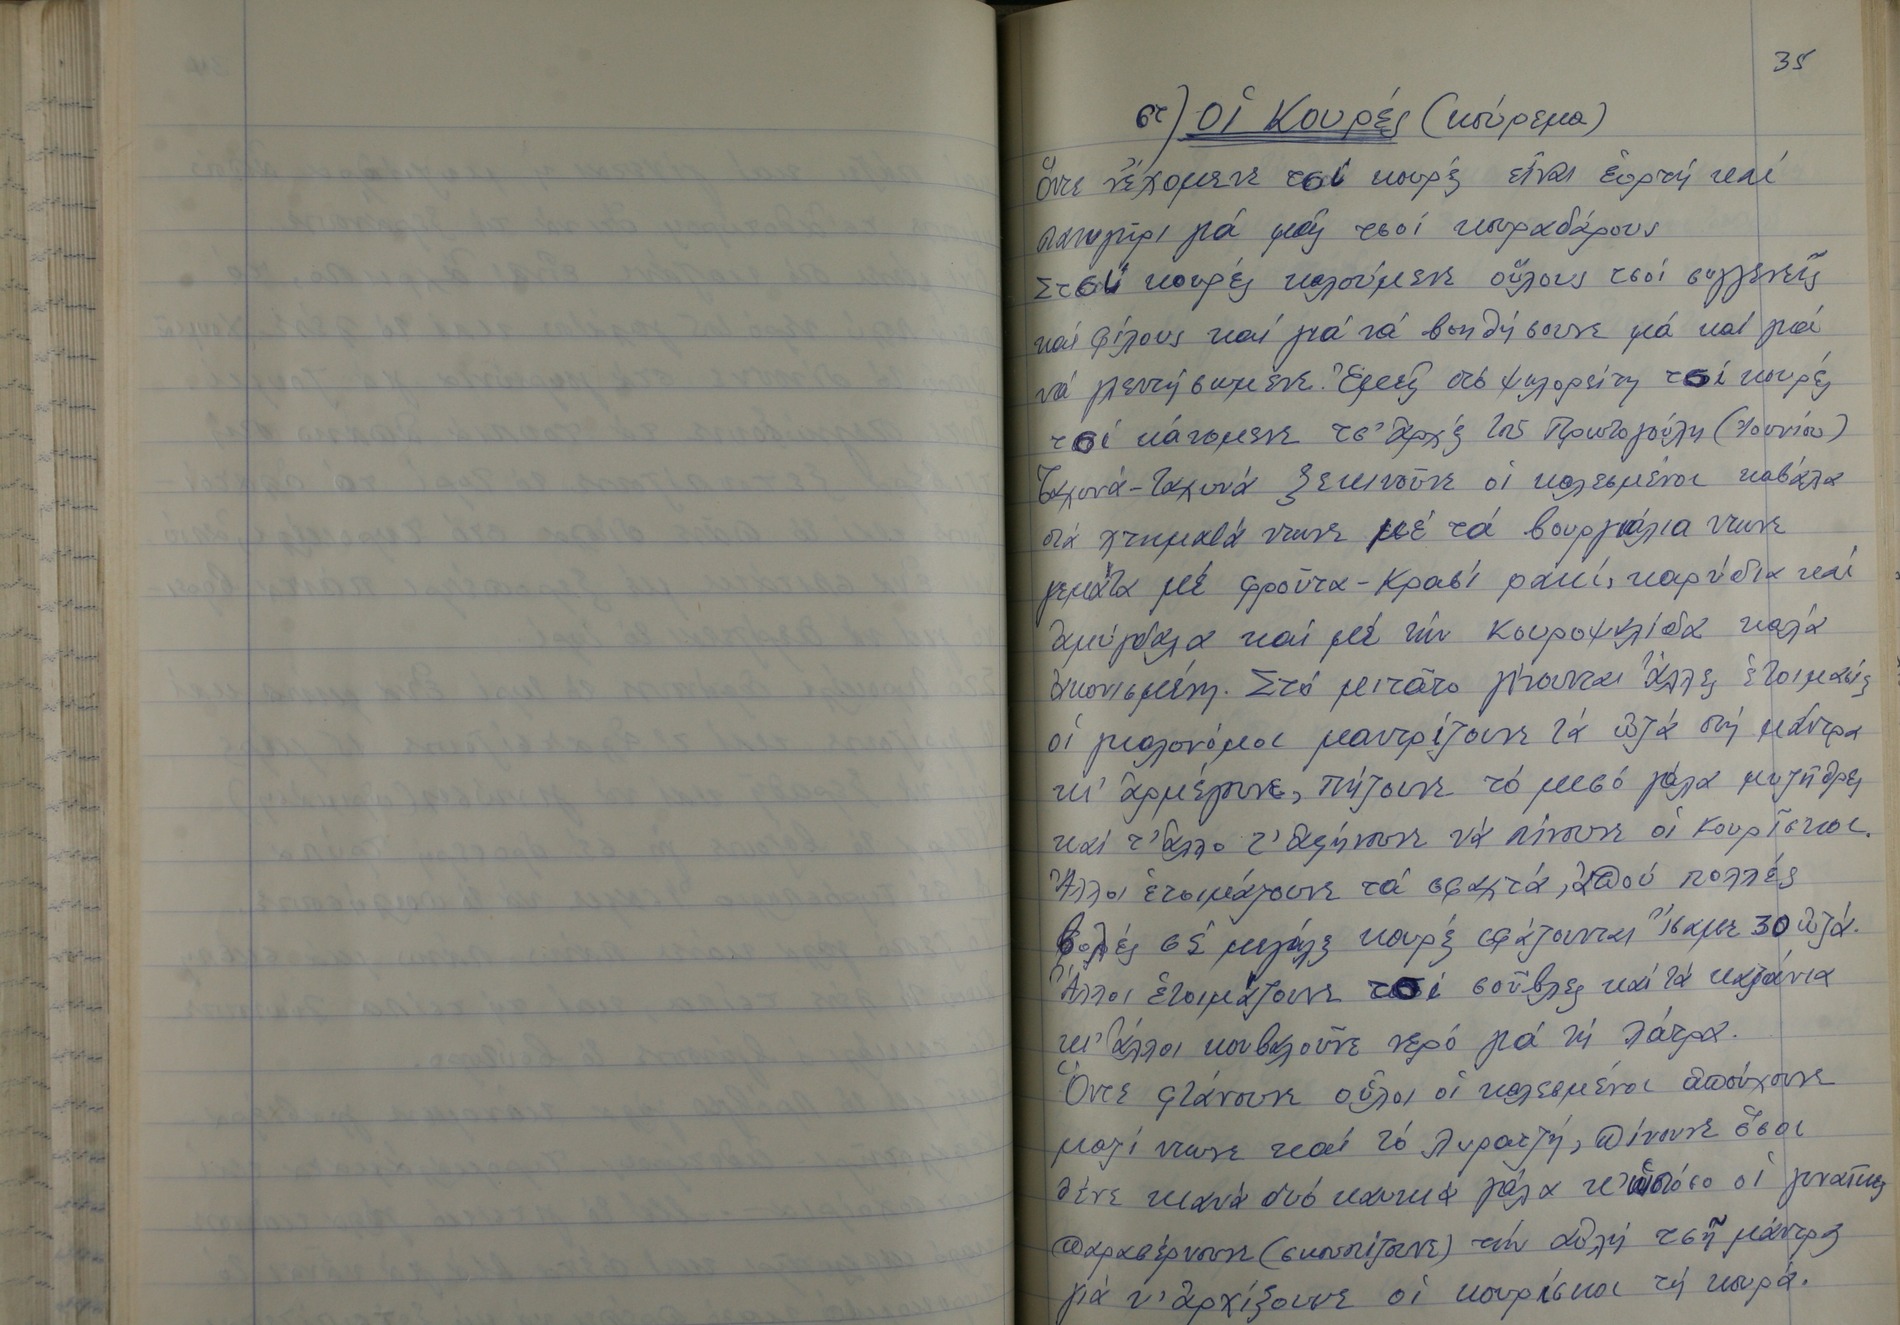 35
στ) οἱ Κουρές (κούρεμα)
Ὅντε ν̓έχομενε τσί κουρές εἶναι ἑορτή καί
πανηγῦρι γιά μᾶς τσοί κουραδάρους
Στσί κουρές καλούμενε οὕλους τσοί συγγενεῖς
καί φίλους καί γιά νά βοηθήσουνε μά καί γιά
νά γλεντήσωμενε. Ἐμεῖς στό ψηλορείτη τσί κουρές
τσί κάνομενε τσ' ἀρχές τοῦ Πρωτογούλη (Ἰουνίου)
Ταχυνά-Ταχυνά ξεκινοῦνε οἱ καλεσμένοι καβάλα
στά χτηματά ντωνε μέ τά βουργιάλια ντωνε
γεμάτα μέ φροῦτα - κρασί ρακί, καρύδια καί
ἀμύγδαλα καί μέ τήν κουροψαλίδα καλά
ἀκονισμένη. Στό μιτάτο γίνουνται ἄλλες ἑτοιμασίες
οἱ γιαλονόμοι μαντρίζουνε τά ὠζά στή μάντρα
κι' ἀρμέγουνε, πήζουνε τό μισό γάλα μυζῆθρες
καί τ' ἄλλο τ' ἀφήνουνε νά πίνουνε οἱ κουρῖσκοι.
Ἄλλοι ἑτοιμάζουνε τά σφαχτά, ἀπού πολλές
βολές σέ μεγάλες κουρές σφάζουνται ἴσαμε 30 ὠζά.
Ἄλλοι ἑτοιμάζουνε τσί σοῦβλες καί τά καζάνια
κι' ἄλλοι κουβαλοῦνε νερό γιά τή λάτρα.
Ὅντε φτάνουνε οὗλοι οἱ καλεσμένοι ἀπούχουνε
μαζί ντωνε καί τό λυρατζή, πίνουνε ὅσοι
θένε κιανά δυό καυκιά γάλα κι' ὡστόσο οἱ γυναῖκες
παρασέρνουνε (σκουπίζουνε) τήν αὐλή τσῆ μάντρας
γιά ν' ἀρχίξουνε οἱ κουρίσκοι τή κουρά.